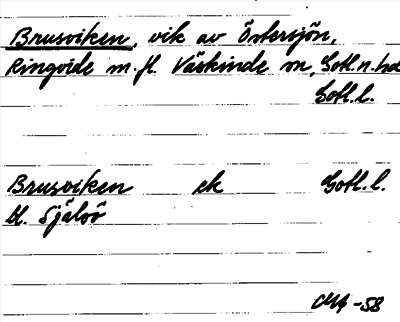 Brusviken, vik av Östersjön,
Ringvide m.fl. Väskinde sn, Gotl.n.hd
Gotl.l.
Brusviken ek Gotl.l.
bl. Själsö
-58